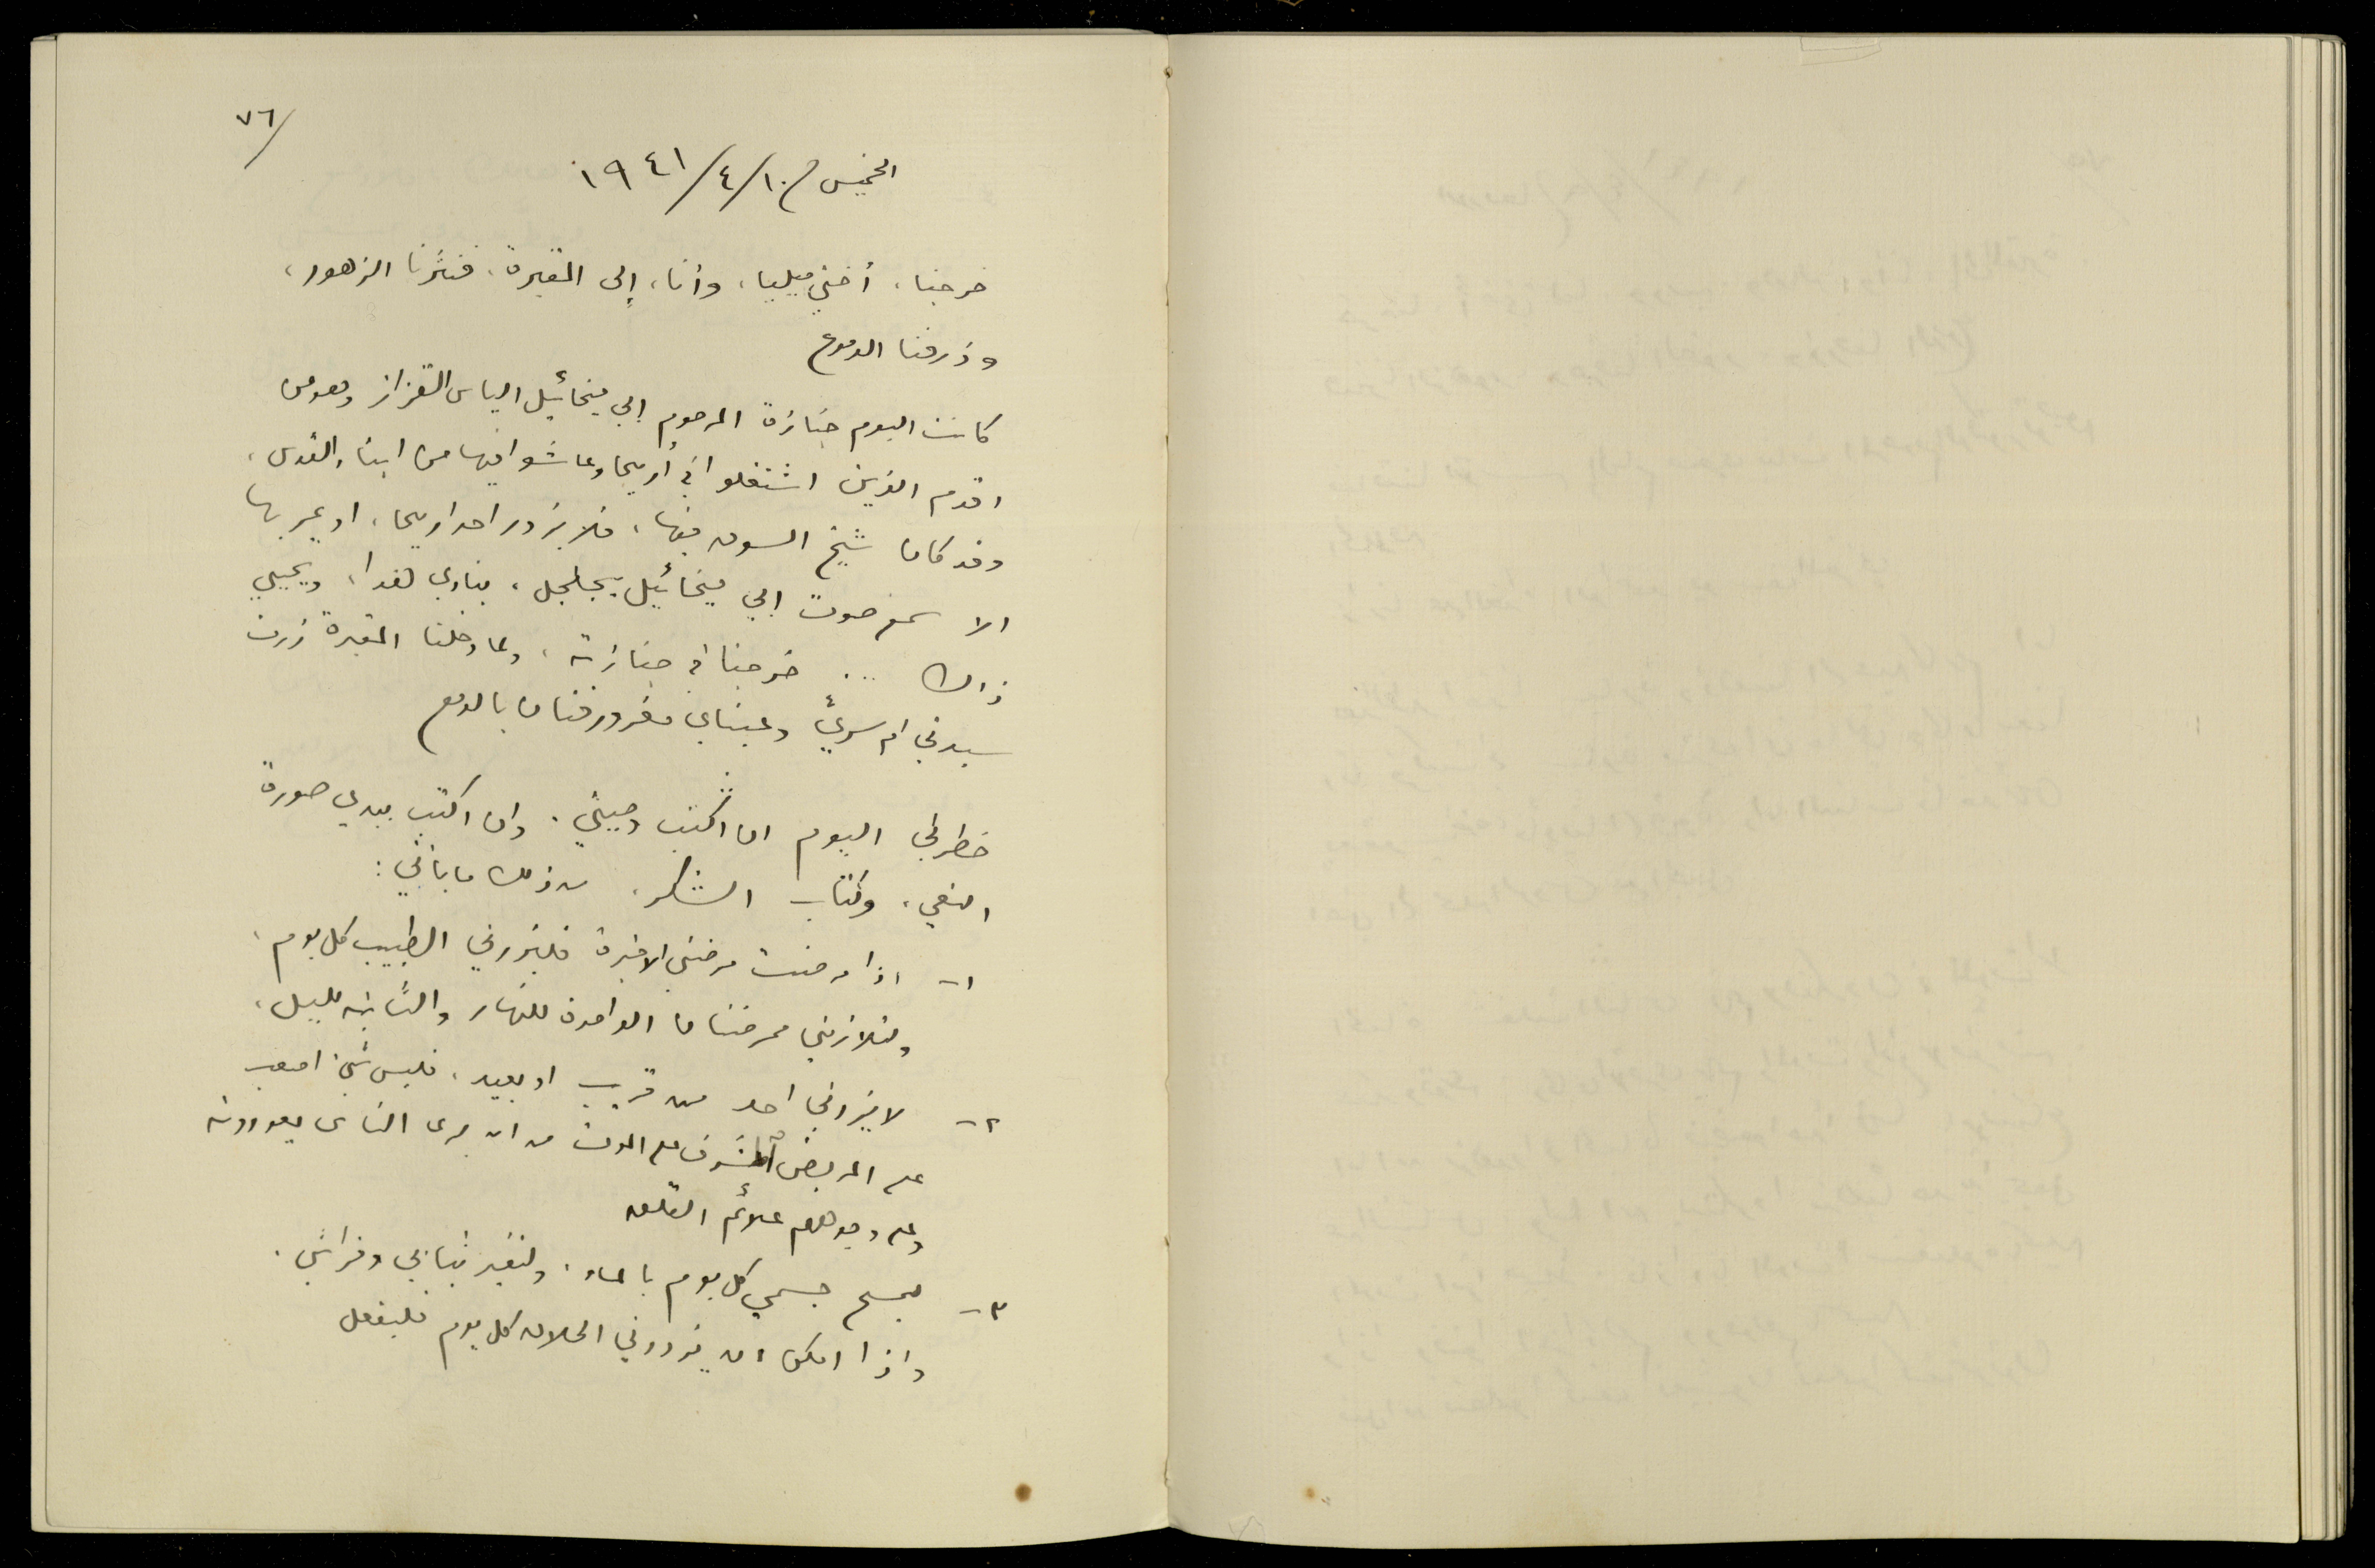 ٧٦/
الخميس في ١٠/٤/١٩٤١
خرجنا، أختي ميليا، وأنا، إلى المقبرة، فنثرنا الزهور،
وذرفنا الدموع
كانت اليوم جنازة المرحوم ابي ميخائيل الياس القزاز وهو من
اقدم الذين اشتغلوا في أريحا وعاشوا فيها من ابناء القدس،
وقد كان شيخ السوق فيها، فلا يزور احد اريحا، او يمر بها
الا سمع صوت ابي ميخائيل يجلجل، ينادي هذا، ويحيي
ذاك ... خرجنا في جنازته، ولما دخلنا المقبرة زرت
سيدتي ام سري وعيناي مغرورقتان بالدمع
خطر لي اليوم ان اكتب وصيتي. وان اكتب بيدي صورة
النعي، وكتاب الشكر. من ذلك ما يأتي:
١- اذا مرضت مرضتي الاخيرة فليزرني الطبيب كل يوم،
ولتلازمني ممرضتان الواحدة للنهار والثانية لليل،
٢- لا يزرني احد من قريب او بعيد، فليس شيء اصعب
على المريض المشرف على الموت من ان يرى الناس يعودونه
وعلى وجوههم علائم القلق
٣- ليمسح جسمي كل يوم بالماء. ولتغير ثيابي وفراشي.
واذا امكن ان يزورني الحلاق كل يوم فليفعل